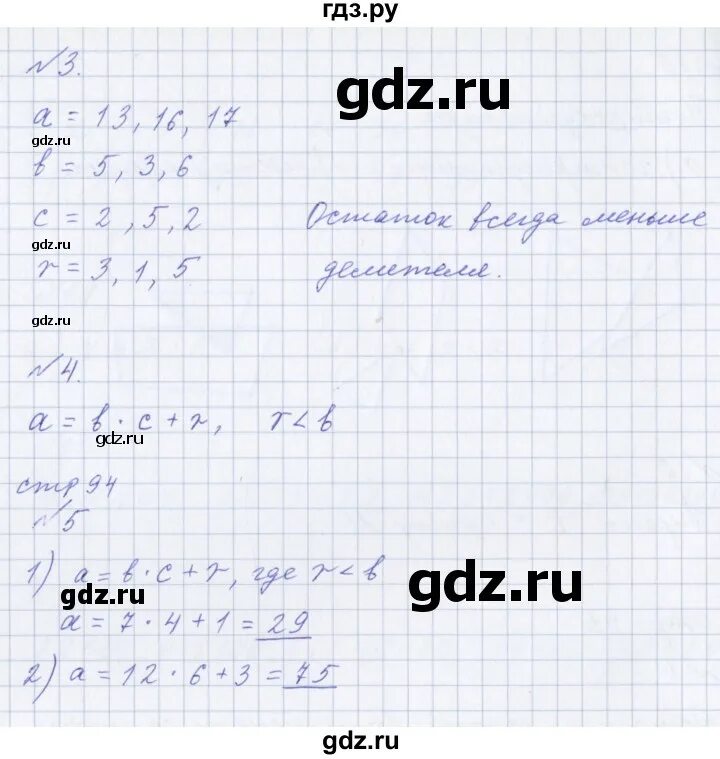 гдз.ру
№3.
gdz.ru
a = 13, 16, 17
gdz.ru
b = 5, 3, 6
c = 2, 5, 2 Остаток всегда меньше
gdz.ru
r = 3, 1, 5 делителя.
gdz.ru
№4.
a = b · c + r, r < b
gdz.ru
стр 94
№5
1) a = b · c + r, где r < b
gdz.ru gdz.ru
a = 7 · 4 + 1 = 29
2) a = 12 · 6 + 3 = 75
gdz.ru